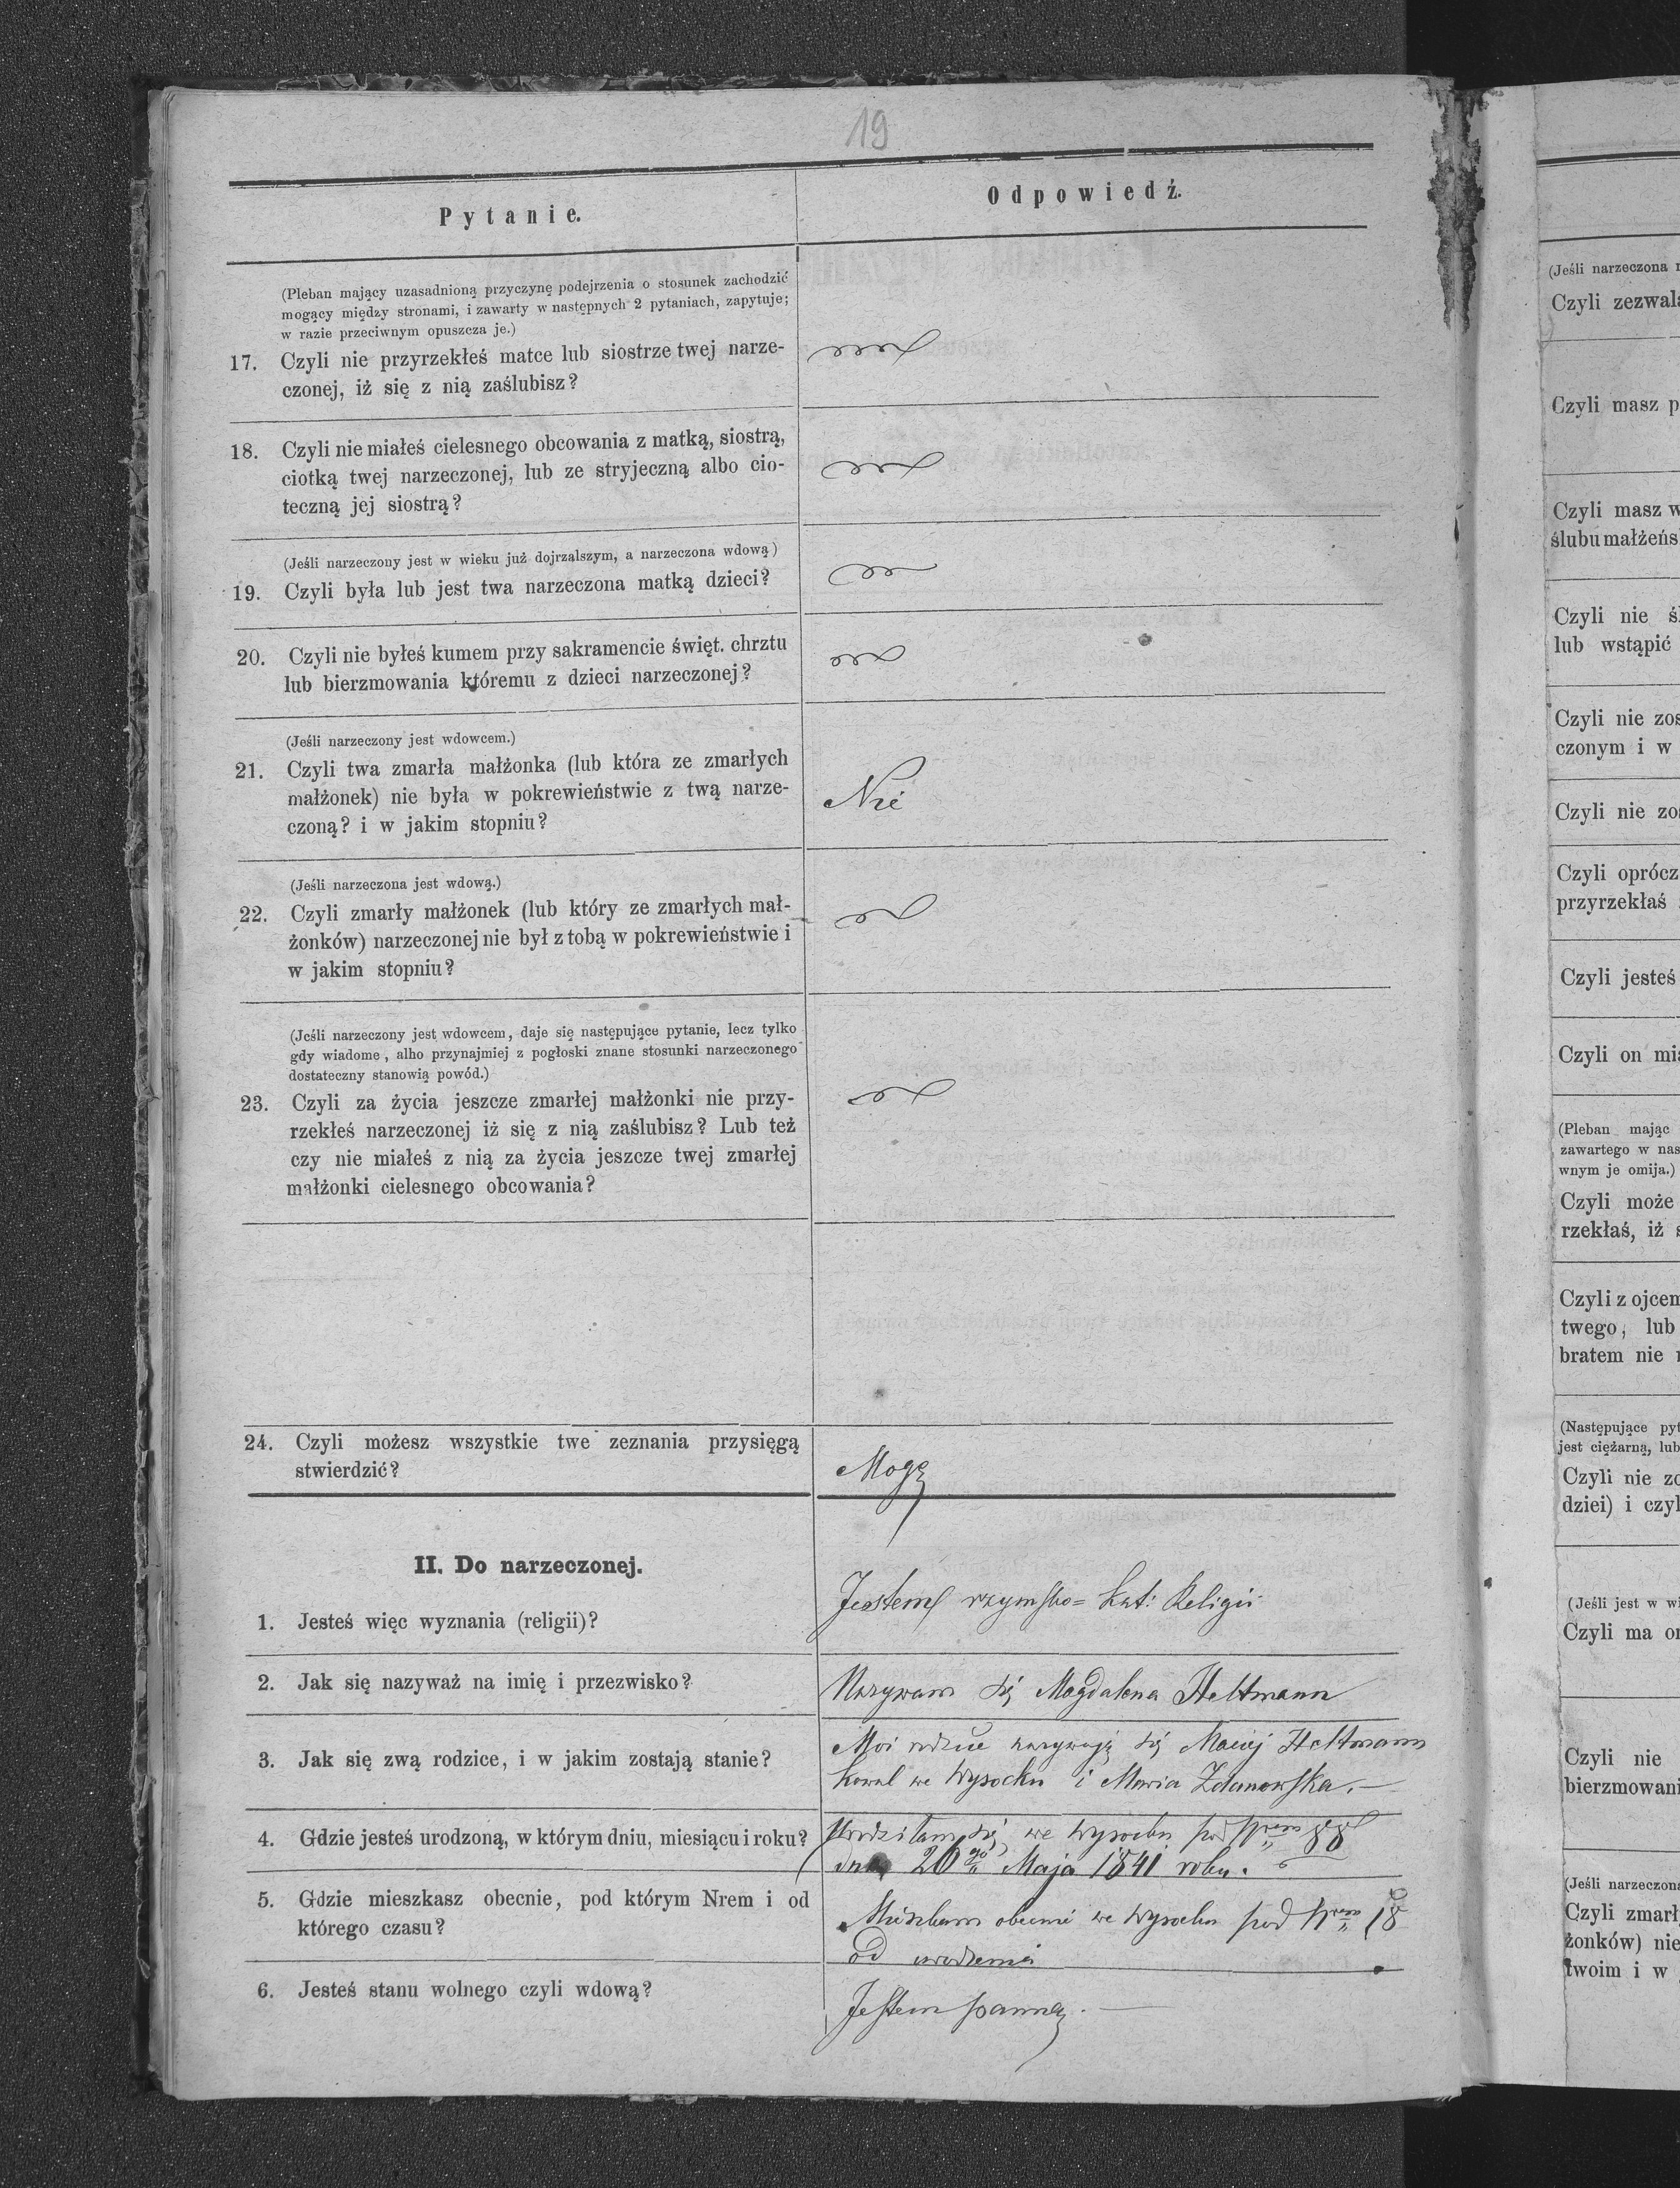 19
Pytanie.
Odpowiedź.
(Pleban mający uzasadnioną przyczynę podejrzenia o stosunek zachodzić
mogący między stronami, i zawarty w następnych 2 pytaniach, zapytuje;
w razie przeciwnym opuszcza je.)
17. Czyli nie przyrzekłeś matce lub siostrze twej narze-
czonej, iż się z nią zaślubisz?
18. Czyli nie miałeś cielesnego obcowania z matką, siostrą,
ciotką twej narzeczonej, lub ze stryjeczną albo cio-
teczną jej siostrą?
(Jeśli narzeczony jest w wieku już dojrzalszym, a narzeczona wdową)
19. Czyli była lub jest twa narzeczona matką dzieci?
20. Czyli nie byłeś kumem przy sakramencie święt. chrztu
lub bierzmowania któremu z dzieci narzeczonej?
(Jeśli narzeczony jest wdowcem.)
21. Czyli twa zmarła małżonka (lub która ze zmarłych
małżonek) nie była w pokrewieństwie z twą narze-
czoną? i w jakim stopniu?
Nie
(Jeśli narzeczona jest wdową.)
22. Czyli zmarły małżonek (lub który ze zmarłych mał-
żonków) narzeczonej nie był z tobą w pokrewieństwie i
w jakim stopniu?
(Jeśli narzeczony jest wdowcem, daje się następujące pytanie, lecz tylko
gdy wiadome, albo przynajmiej z pogłoski znane stosunki narzeczonego
dostateczny stanowią powód.)
23. Czyli za życia jeszcze zmarłej małżonki nie przy-
rzekłeś narzeczonej iż się z nią zaślubisz? Lub też
czy nie miałeś z nią za życia jeszcze twej zmarłej
małżonki cielesnego obcowania?
24. Czyli możesz wszystkie twe zeznania przysięgą
stwierdzić?
Mogę
II. Do narzeczonej.
1. Jesteś więc wyznania (religii)?
Jestem rzymsko= kat: Religii
2. Jak się nazyważ na imię i przezwisko?
Nazywam się Magdalena Heltmann
3. Jak się zwą rodzice, i w jakim zostają stanie?
Moi rodzice nazywają się Maciej Heltmann
kowal we Wysocku i Maria Zdanowska.—
4. Gdzie jesteś urodzoną, w którym dniu, miesiącu i roku?
Urodziłam się we Wysocku pod
dnia 26go Maja 1841 roku.
5. Gdzie mieszkasz obecnie, pod którym Nrem i od
którego czasu?
Mieszkam obecnie we Wysocku pod Nrem 18
od urodzenia
6. Jesteś stanu wolnego czyli wdową?
Jestem panną.—
(Jeśli narzeczona
Czyli zezwala
Czyli masz
Czyli masz
ślubu małżeńs
Czyli nie
lub wstąpić
Czyli nie zos
czonym i w
Czyli nie
Czyli oprócz
przyrzekłaś
Czyli jesteś
Czyli on
(Pleban mając
zawartego w nas
wnym je omija.)
Czyli może
rzekłaś, iż
Czyli z ojcem
twego, lub
bratem nie
(Następujące
jest ciężarną, lub
Czyli nie
dziei) i
(Jeśli jest w
Czyli ma
Czyli nie
bierzmowani
(Jeśli narzeczona
Czyli zmarł
żonków) nie
twoim i w